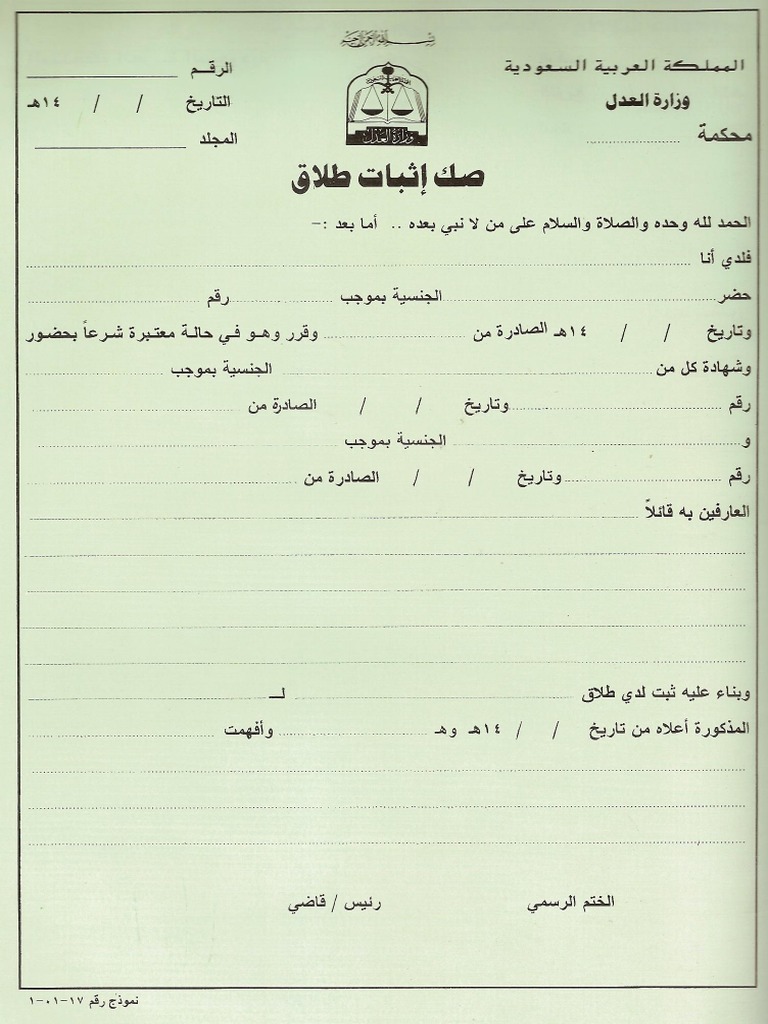 بسم الله الرحمن الرحيم
المملكة العربية السعودية
وزارة العدل
محكمة
الرقـم
التاريخ / / ١٤هـ
المجلد
وزارة العدل
صك إثبات طلاق
الحمد لله وحده والصلاة والسلام على من لا نبي بعده .. أما بعد :-
فلدي أنا
حضر الجنسية بموجب رقم
وتاريخ / / ١٤هـ الصادرة من وقرر وهـو فـي حالـة معتبرة شـرعاً بحضـور
وشهادة كل من الجنسية بموجب
رقم وتاريخ / / الصادرة من
و الجنسية بموجب
رقم وتاريخ / / الصادرة من
العارفين به قائلاً
وبناء عليه ثبت لدي طلاق لــ
المذكورة أعلاه من تاريخ / / ١٤هـ وهـ وأفهمت
الختم الرسمي رئيس / قاضي
نموذج رقم ١٧-٠١-١